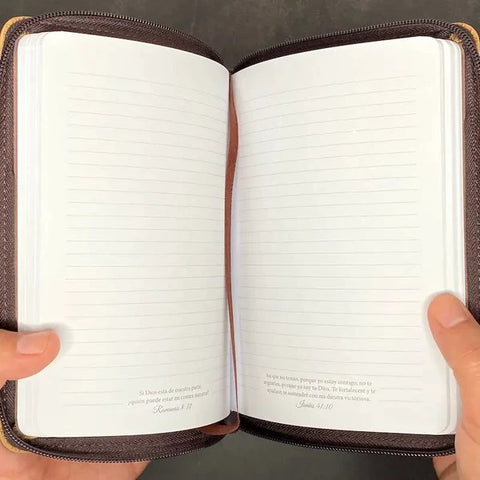 Si Dios está de nuestra parte,
¿quién puede estar en contra nuestra?
Romanos 8:
Así que no temas, porque yo estoy contigo; no te
angusties, porque yo soy tu Dios. Te fortaleceré y te
ayudaré; te sostendré con mi diestra victoriosa.
Isaías 41:10